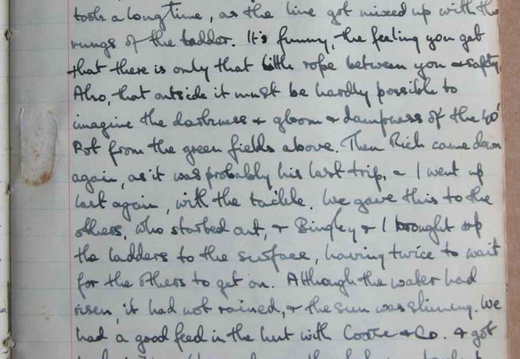 took a long time, as the line got mixed up with the
rungs of the ladder. It's funny, the feeling you get
that there is only that little rope between you & safety.
Also, that outside it must be hardly possible to
imagine the darkness & gloom & dampness of the 40'
Pot from the green fields above. Then Rich came down
again, as it was probably his last trip, & I went up
last again, with the tackle. We gave this to the
others, who started out, & Bingley & I brought up
the ladders to the surface, having twice to wait
for the others to get on. Although the water had
risen, it had not rained, & the sun was shining. We
had a good feed in the hut with & Co. & got